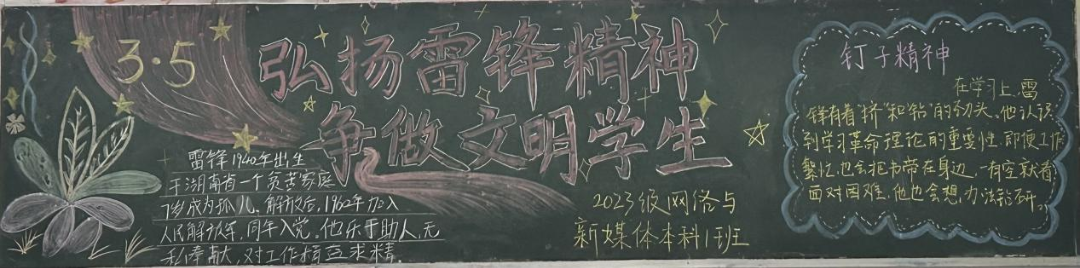 3·5
弘扬雷锋精神
争做文明学生
雷锋1940年出生
于湖南省一个贫苦家庭
7岁成为孤儿、解放后,1960年加入
人民解放军,同年入党,他乐于助人,无
私奉献,对工作精益求精.
2023级网络与
新媒体本科1班
钉子精神
在学习上,雷
锋有着"挤"和"钻"的劲头、他认识
到学习革命理论的重要性,即便工作
繁忙,也会把书带在身边,一有空就看
面对困难,他也会想办法钻研。